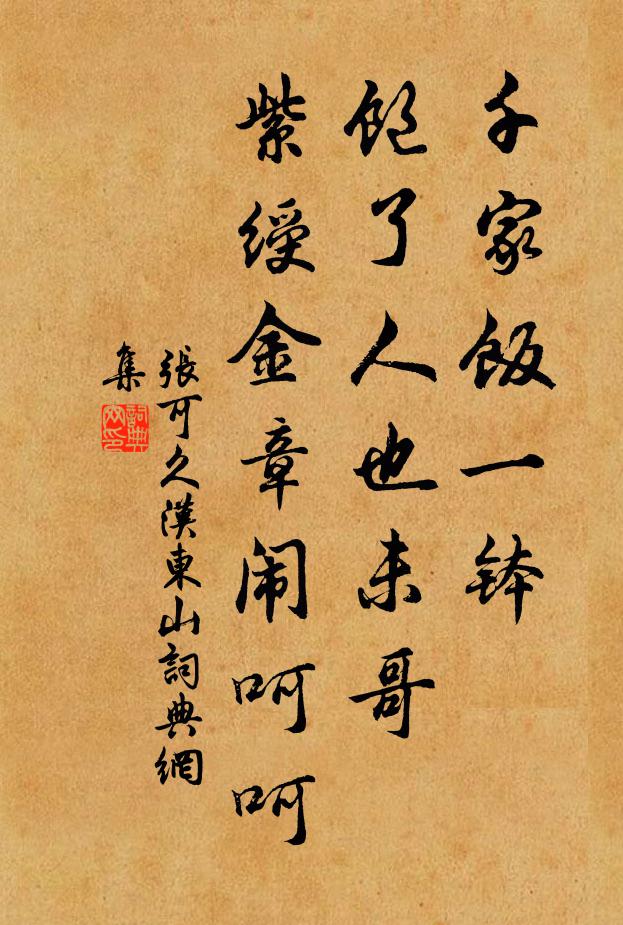 千家飯一鉢
飽了人也未哥
紫綬金章闹呵呵
張可久漢東山詞典網
集
詞典
网印